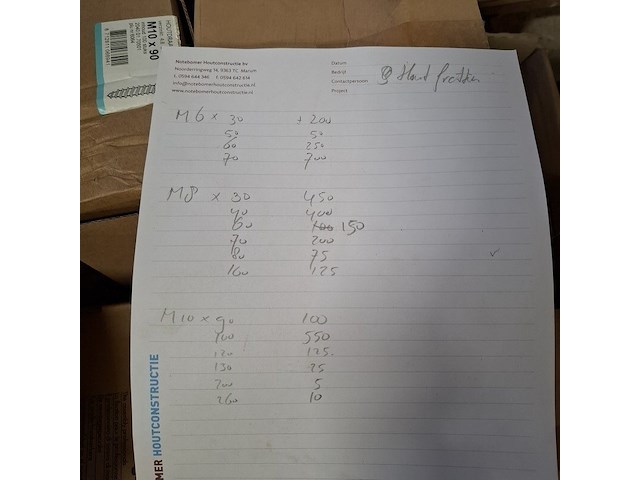 HOUTDRAAD
M10 x 90
Notebomer Houtconstructie bv
Noorderringweg 16, 9363 TC Marum
t. 0594 644 346 f. 0594 642 614
info@notebomerhoutconstructie.nl
www.notebomerhoutconstructie.nl
Datum
Bedrijf
Contactpersoon
Project
Hout
M6 x 30 ± 200
50 50
60 250
70 700
M8 x 30 450
40 400
60 150
70 200
80 75
160 125
M10 x 90 100
100 550
120 125
130 25
200 5
260 10
MER HOUTCONSTRUCTIE